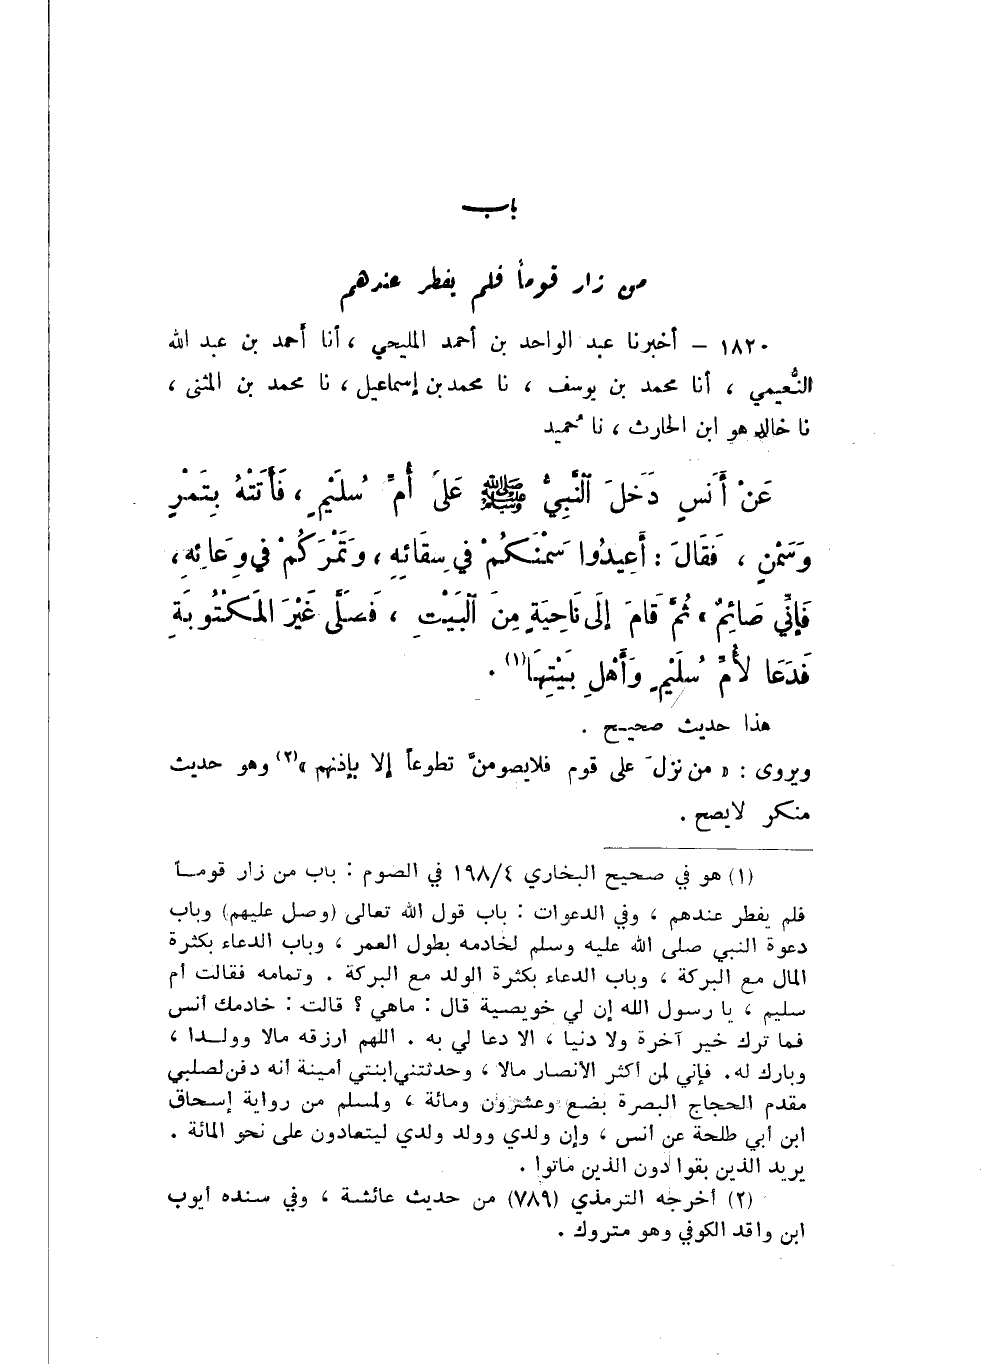 باب
من زار قوماً فلم يفطر عندهم
١٨٢٠ – أخبرنا عبد الواحد بن أحمد المليحي ، أنا أحمد بن عبد الله
النُّعيمي ، أنا محمد بن يوسف ، نا محمد بن إسماعيل ، نا محمد بن المثنى ،
نا خالد هو ابن الحارث ، نا حُميد
عَنْ أَنَسٍ دَخَلَ ٱلنَّبِيُّ ﷺ عَلَى أُمِّ سُلَيْمٍ ، فَأَتَتْهُ بِتَمْرٍ
وَسَمْنٍ ، فَقَالَ : أَعِيدُوا سَمْنَكُمْ فِي سِقَائِهِ ، وَتَمْرَكُمْ فِي وِعَائِهِ ،
فَإِنِّي صَائِمٌ » ثُمَّ قَامَ إِلَى نَاحِيَةٍ مِنَ ٱلْبَيْتِ ، فَصَلَّى غَيْرَ المَكْتُوبَةِ
فَدَعَا لأُمِّ سُلَيْمٍ وَأَهْلِ بَيْتِهَا (١) .
هذا حديث صحيح .
ويروى : « من نزلَ على قوم فلايصومنَّ تطوعاً إلا بإذنهم » (٢) وهو حديث
منكر لايصح .
(١) هو في صحيح البخاري ١٩٨/٤ في الصوم : باب من زار قوماً
فلم يفطر عندهم ، وفي الدعوات : باب قول الله تعالى (وصل عليهم) وباب
دعوة النبي صلى الله عليه وسلم لخادمه بطول العمر ، وباب الدعاء بكثرة
المال مع البركة ، وباب الدعاء بكثرة الولد مع البركة . وتمامه فقالت أم
سليم ، يا رسول الله إن لي خويصية قال : ماهي ؟ قالت : خادمك أنس
فما ترك خير آخرة ولا دنيا ، الا دعا لي به . اللهم ارزقه مالا وولدا ،
وبارك له . فإني لمن أكثر الأنصار مالا ، وحدثتني ابنتي أمينة أنه دفن لصلبي
مقدم الحجاج البصرة بضع وعشرون ومائة ، ولمسلم من رواية إسحاق
ابن أبي طلحة عن أنس ، وإن ولدي وولد ولدي ليتعادون على نحو المائة .
يريد الذين بقوا دون الذين ماتوا .
(٢) أخرجه الترمذي (٧٨٩) من حديث عائشة ، وفي سنده أيوب
ابن واقد الكوفي وهو متروك .